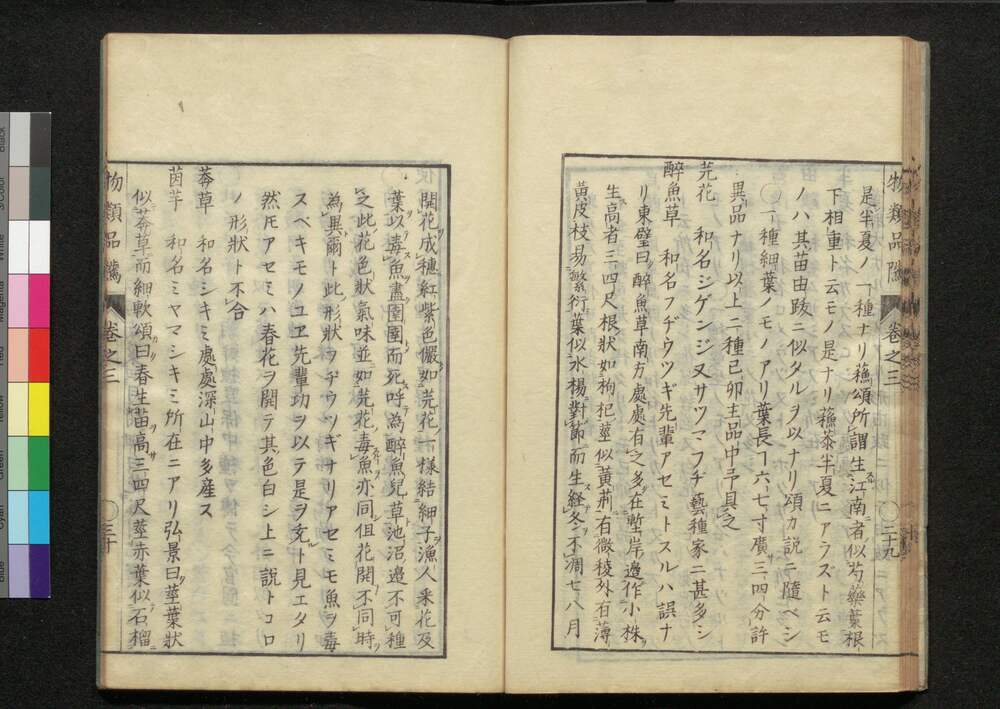 是半夏ノ一種ナリ蘓頌所謂生江南者似芍藥葉根
下相重ト云モノ是ナリ蘓恭半夏ニアラズト云モ
ノハ其苗由跋ニ似タルヲ以ナリ頌カ説ニ隨ベシ
○一種細葉ノモノアリ葉長ヿ六七寸廣三四分許
異品ナリ以上二種己卯主品中予具之
芫花 和名シゲンジ又サツマフヂ藝種家ニ甚多シ
醉魚草 和名フヂウツギ先輩アセミトスルハ誤ナ
リ東璧曰醉魚草南方處處有之多在塹岸邊作小株
生高者三四尺根狀如枸杞莖似黃荊有微稜外有薄
黃皮枝易繁衍葉似水楊對節而生經冬不凋七八月
物類品隲 卷之三 ○二十九
開花成穗紅紫色儼如芫花一樣結細子漁人釆花及
葉以毒魚盡圉圉而死呼為醉魚兒草池沼邊不可種
之此花色狀氣味並如芫花毒魚亦同但花開不同時
為異爾ト此形狀ヲヂウツギナリアセミモ魚ヲ毒
スベキモノユヱ先輩功ヲ以テ是ヲ充ト見エタリ
然𪜈アセミハ春花ヲ開テ其色白シ上ニ説トコロ
ノ形狀ト不合
莽草 和名シキミ處處深山中多産ス
茵芋 和名ミヤマシキミ所在ニアリ弘景曰莖葉狀
似莽草而細軟頌曰春生苗高三四尺莖赤葉似石榴
物類品隲 卷之三 ○三十